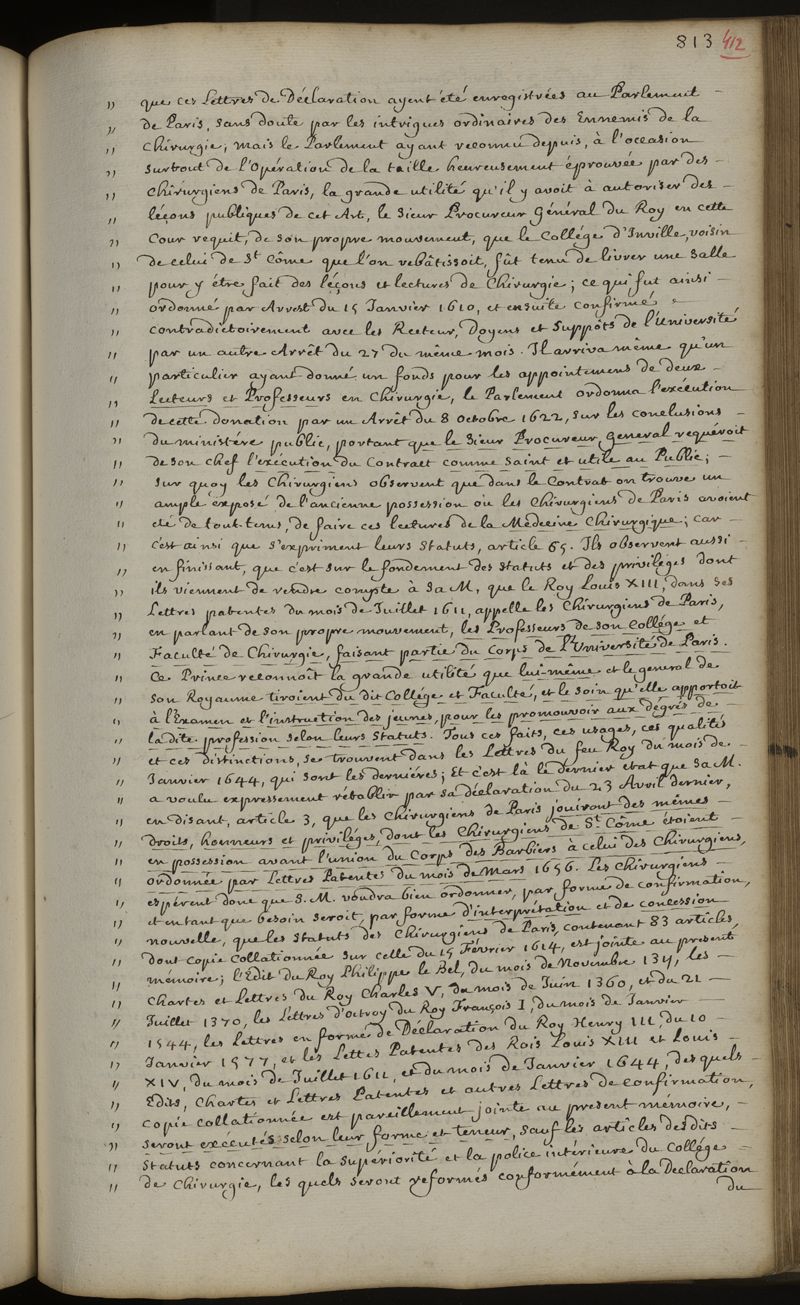 813 412
" que ces Lettres de Déclaration ayent été enregistrées au Parlement —
" de Paris, sans doute par les intrigues ordinaires des Ennemis de la
" Chirurgie; mais le Parlement ayant reconnu depuis, à l'occasion
" surtout de l'Opération de la taille heureusement éprouvée par des —
" Chirurgiens de Paris, la grande utilité qu'il y avoit à autoriser des —
" léçons publiques de cet Art, le Sieur Procureur Général du Roy en cette
" Cour requit, de son propre mouvement, que le Collége d'Inville, voisin
" de celui de St. Côme que l'on rebâtissoit, fût tenu de livrer une salle
" pour y être fait des léçons et lectures de Chirurgie; ce qui fut ainsi —
" ordonné par Arrest du 15 Janvier 1610, et ensuite confirmé
" contradictoirement avec les Recteur, Doyens et Suppôts de l'Université
" par un autre Arrêt du 27 du même mois. Il arriva même qu'un
" particulier ayant donné un fonds pour les appointemens de deux —
" Lecteurs et Professeurs en Chirurgie, le Parlement ordonna l'exécution
" de cette donation par un Arrêt du 8 Octobre 1622, sur les conclusions —
" du ministére public, portant que le Sieur Procureur General requéroit
" de son chef l'exécution du Contract comme saint et utile au Public; —
" sur quoy les Chirurgiens observent que dans le Contrat on trouve un
" ample exposé de l'ancienne possession où les Chirurgiens de Paris avoient
" été de tout tems, de faire ces lectures de la Médecine Chirurgique; car —
" c'est ainsi que s'expriment leurs Statuts, article 65. Ils observent aussi —
" en finissant, que c'est sur le fondement des Statuts et des priviléges dont
" ils viennent de rendre compte à Sa M, que le Roy Louis XIII, dans ses
" Lettres patentes du mois de Juillet 1611, appelle les Chirurgiens de Paris,
" en parlant de son propre mouvement, les Professeurs de son Collége et
" Faculté de Chirurgie, faisant partie du Corps de l'Université de Paris.
" Ce Prince reconnoît la grande utilité que lui-même et le general de
" son Royaume tiroient du dit Collége et Faculté, et le soin qu'elle apportoit
" à l'Examen et l'instruction des jeunes, pour les promouvoir aux dégrés de —
" la dite profession selon leurs Statuts. Tous ces faits, ces usages, ces qualités
" et ces distinctions, se trouvent dans les Lettres du feu Roy du mois de —
" Janvier 1644, qui sont les derniéres; Et c'est là le dernier etat que Sa M.
" a voulu expressement rétablir par sa déclaration du 23 Avril dernier,
" en disant, article 3, que les Chirurgiens de Paris jouiront des mêmes —
" droits, honneurs et priviléges, dont les Chirurgiens de St. Côme étoient —
" en possession avant l'union du Corps des Barbiers à celui des Chirurgiens,
" ordonnée par Lettres Patentes du mois de Mars 1656. Les Chirurgiens —
" espérent donc que S. M. voudra bien ordonner, par forme de confirmation,
" et entant que besoin seroit, par forme d'interprétation et de concession
" nouvelle, que les Statuts des Chirurgiens de Paris, contenant 83 articles,
" dont copie collationnée sur celle du 15 Février 1614, est jointe au present
" mémoire; l'Edit du Roy Philippe le Bel, du mois de Novembre 1311, les —
" Chartes et Lettres du Roy Charles V, du mois de Juin 1360, et du 21 —
" Juillet 1370, les Lettres d'octroy du Roy François I, du mois de Janvier —
" 1544, les Lettres en forme de Déclaration du Roy Henry III, du 10 —
" Janvier 1577, et les Lettes Patentes des Rois Louis XIII et Louis —
" XIV, du mois de Juillet 1611, et du mois de Janvier 1644, desquels —
" Edits, Chartes et Lettres Patentes et autres Lettres de confirmation,
" copie collationnée est pareillement jointe au present mémoire, —
" seront exécutés selon leur forme et teneur, sauf les articles desdits —
" Statuts concernant la supériorité et la police intérieure du Collége —
" de Chirurgie, les quels seront reformés conformément à la Declaration
du